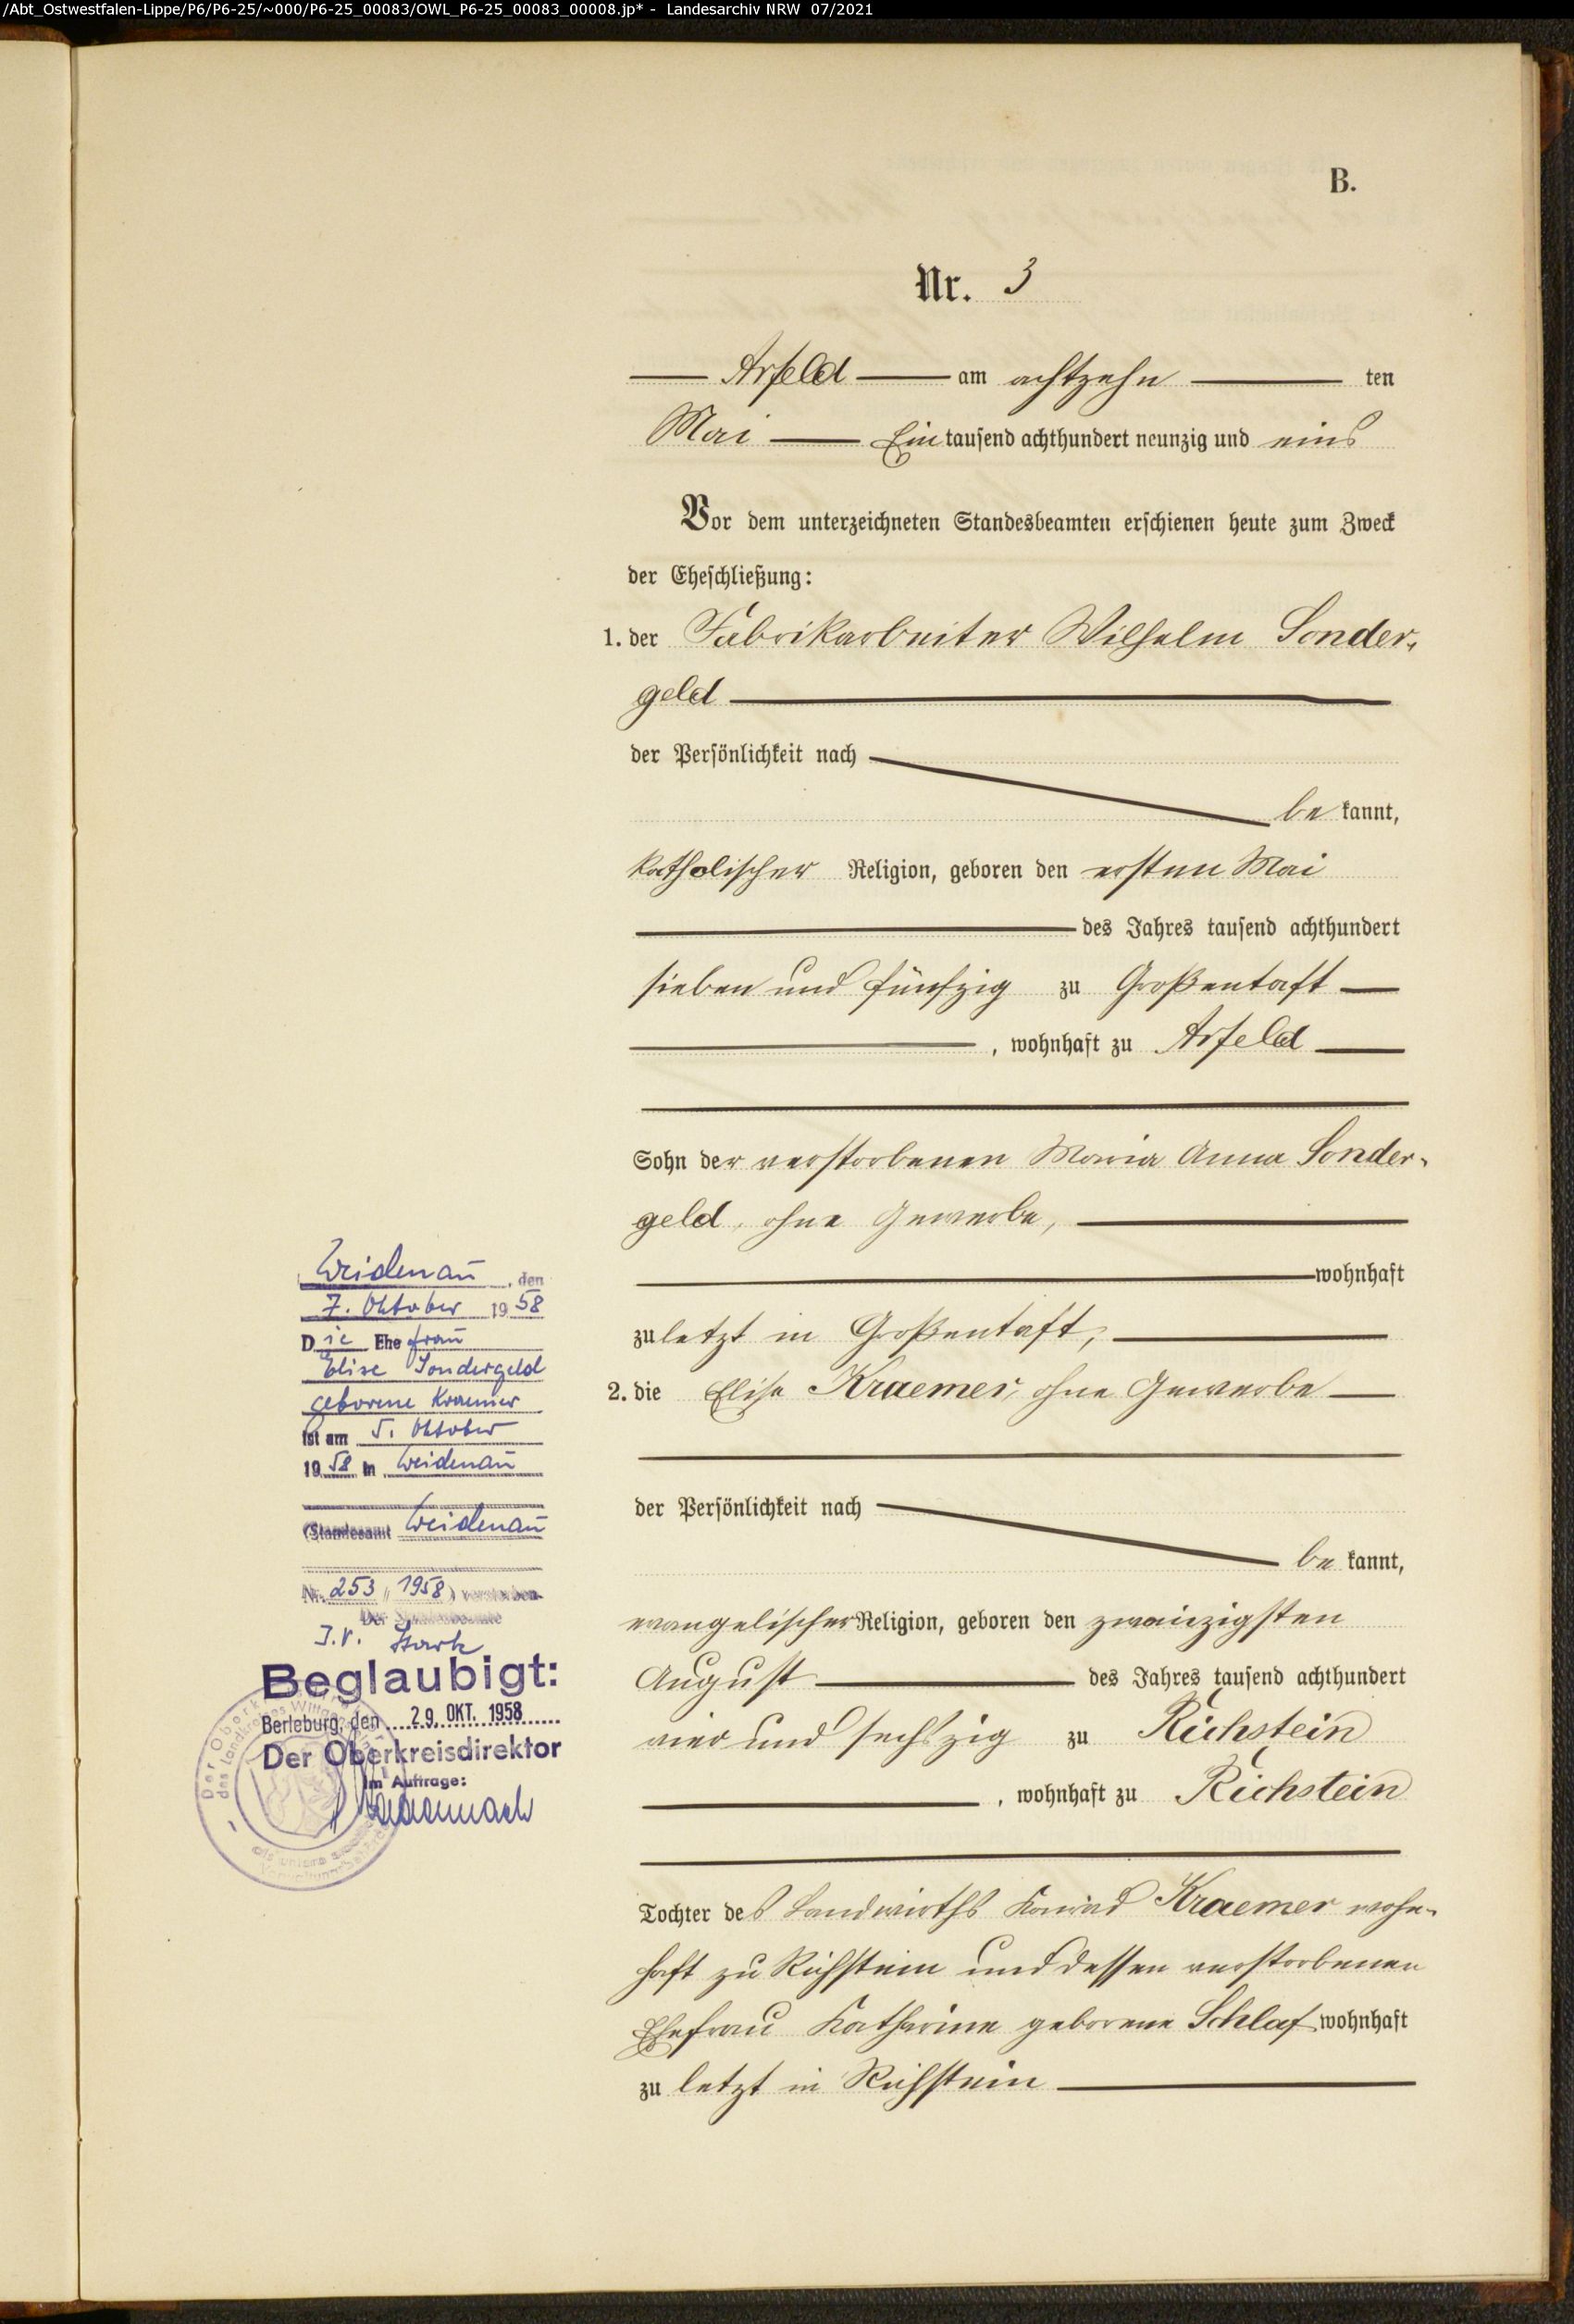 /Abt_Ostwestfalen-Lippe/P6/P6-25/~000/P6-25_00083/OWL_P6-25_00083_00008.jp* - Landesarchiv NRW 07/2021
B.
Nr. 3
Arfeld am achtzehn ten
Mai Ein tausend achthundert neunzig und eins
Vor dem unterzeichneten Standesbeamten erschienen heute zum Zweck
der Eheschließung:
1. der Fabrikarbeiter Wilhelm Sonder-
geld
der Persönlichkeit nach
be kannt,
katholischer Religion, geboren den ersten Mai
des Jahres tausend achthundert
sieben und fünfzig zu Großentaft
, wohnhaft zu Arfeld
Sohn der verstorbenen Maria Anna Sonder-
geld, ohne Gewerbe,
wohnhaft
zuletzt in Großentaft,
2. die Elise Kraemer, ohne Gewerbe
der Persönlichkeit nach
be kannt,
evangelischer Religion, geboren den zwanzigsten
August des Jahres tausend achthundert
vier und sechszig zu Richstein
, wohnhaft zu Richstein
Tochter des Landwirths Konrad Kraemer wohn-
haft zu Richstein und dessen verstorbenen
Ehefrau Katharine geborene Schlaf wohnhaft
zu letzt in Richstein
Weidenau, den
7. Oktober 1958
Die Ehefrau
Elise Sondergeld
geborene Kraemer
ist am 5. Oktober
1958 in Weidenau
(Standesamt Weidenau
Nr. 253/1958) verstorben.
Der Standesbeamte
I.V. Stark
Beglaubigt:
Berleburg, den 29. OKT. 1958
Der Oberkreisdirektor
Im Auftrage: